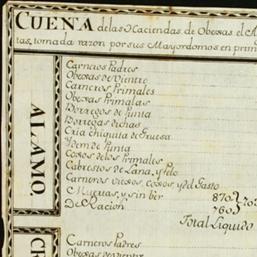 CUENA de las Haciendas de Obexas el
tas, tomada razon por sus Mayordomos en prim
ALAMO.
Carneros Padres
Obexas de Vientre
Carneros Primales
Obexas Primalas
Borregos de Punta
Borregas dichas
Cria chiquita de Gruesa
Ydem de Punta
Cojos de los Primales
Cabrestos de Lana, y Pelo
Carneros viexos, coxos, y del Gasto
Muertas, y sin bër
De Racion 760
Total Liquido
Carneros Padres
Obexas de Vientre